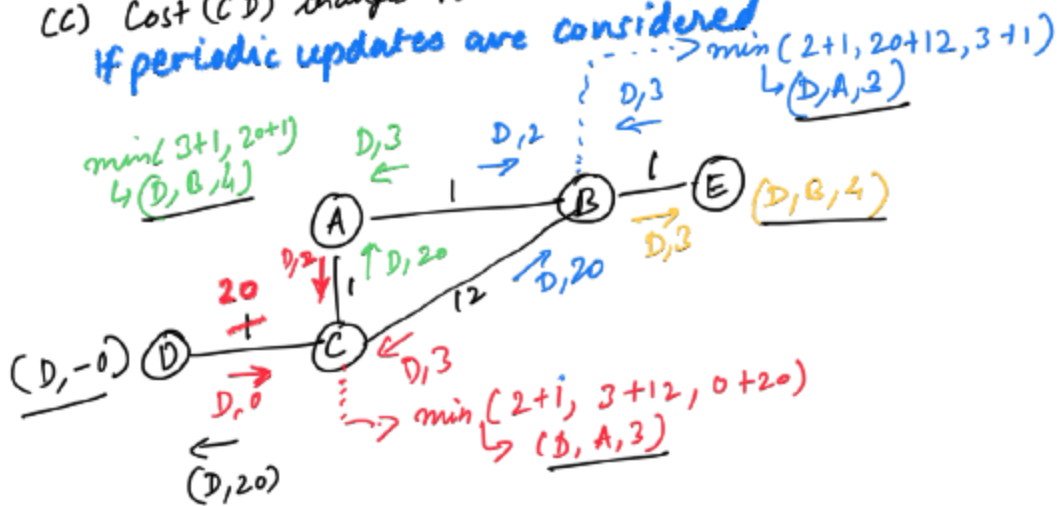 (C) Cost (CD) changes
If periodic updates are considered
min (2+1, 20+12, 3+1)
↳(D,A,3)
D,3
←
min( 3+1, 20+1)
↳(D,B,4)
D,3
←
D,2
→
1
1
A
B
E
(D,B,4)
D,3
D,2
↓
↑D,20
1
12
D,20
20
1
(D,-0)
D
C
→
D,0
←
(D,20)
←
D,3
min (2+1, 3+12, 0+20)
↳ (D, A, 3)